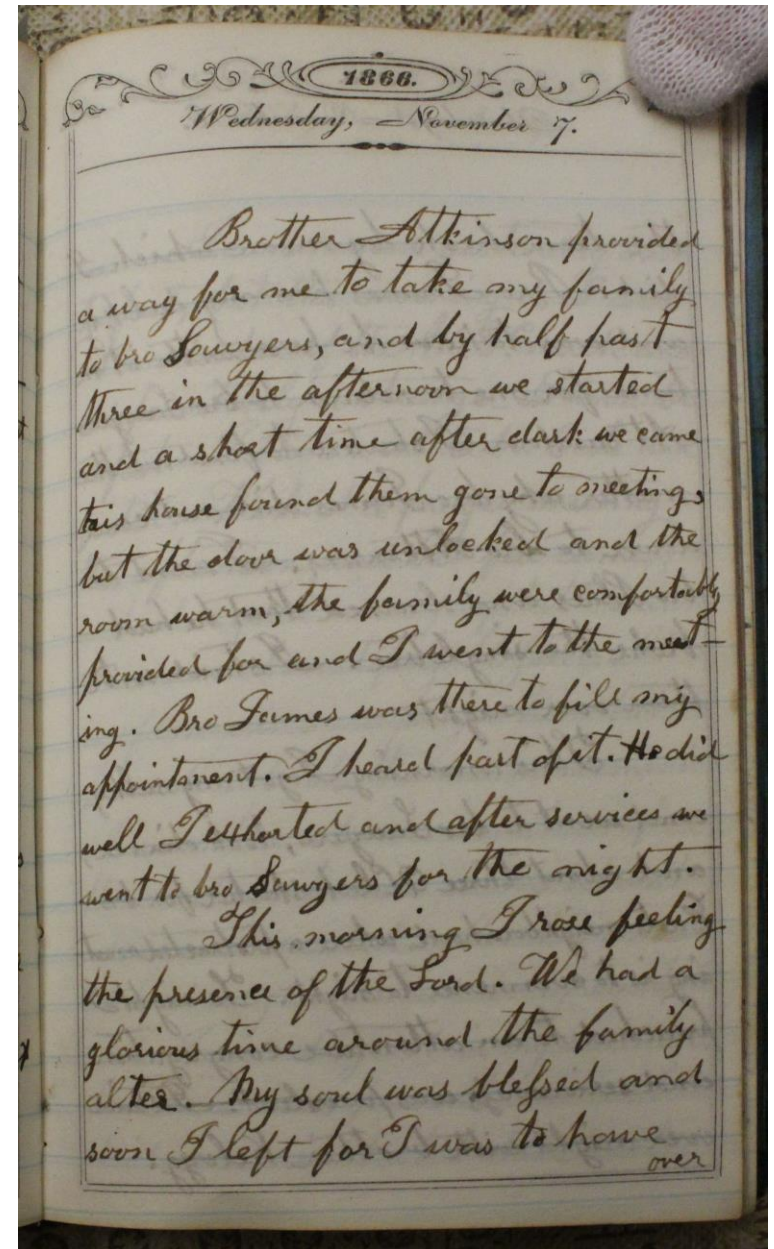 1866.
Wednesday, November 7.
Brother Atkinson provided
a way for me to take my family
to bro Sawyers, and by half past
three in the afternoon we started
and a short time after dark we came
this house found them gone to meeting,
but the door was unlocked and the
room warm, the family were comfortably
provided for and I went to the meet-
ing. Bro James was there to fill my
appointment. I heard part of it. He did
well I exhorted and after services we
went to bro Sawyers for the night.
This morning I rose feeling
the presence of the Lord. We had a
glorious time around the family
alter. My soul was blessed and
soon I left for I was to have
over